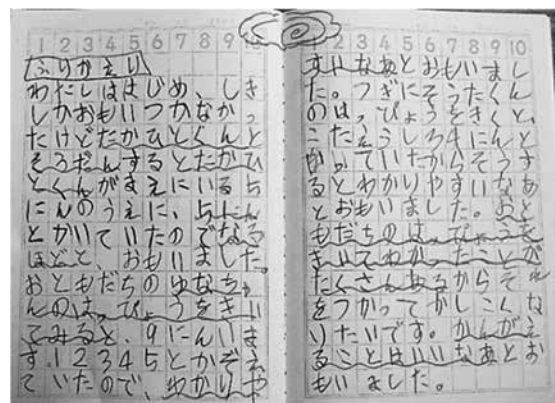 1 2 3 4 5 6 7 8 9
ふりかえり
わたしははじめ、しき
しかおもいつかなかっ
たけどたかひとくんと
そうだんするとたかひ
とくんがまえにいる5
にんのうえに、5にん
とかいていたのでなる
ほどと、おもいました。
おともだちのゆなちゃ
んのはっぴょうをきい
てみると、9にんいま
す。12345とかぞえ
ていたので、わかりや
2 3 4 5 6 7 8 9 10
すいなあとおもいまし
た。つぎにそうたくん
のはっぴょうをきくと、
こたえうしろ4にんと
かいていたからそうす
るとわかりやすいなあ
とおもいました。おと
もだちのはっぴょうを
きいてわかったことが
たくさんあるからそれ
をつかってかしこくな
りたいです。かんがえ
ることはいいなあとお
もいました。